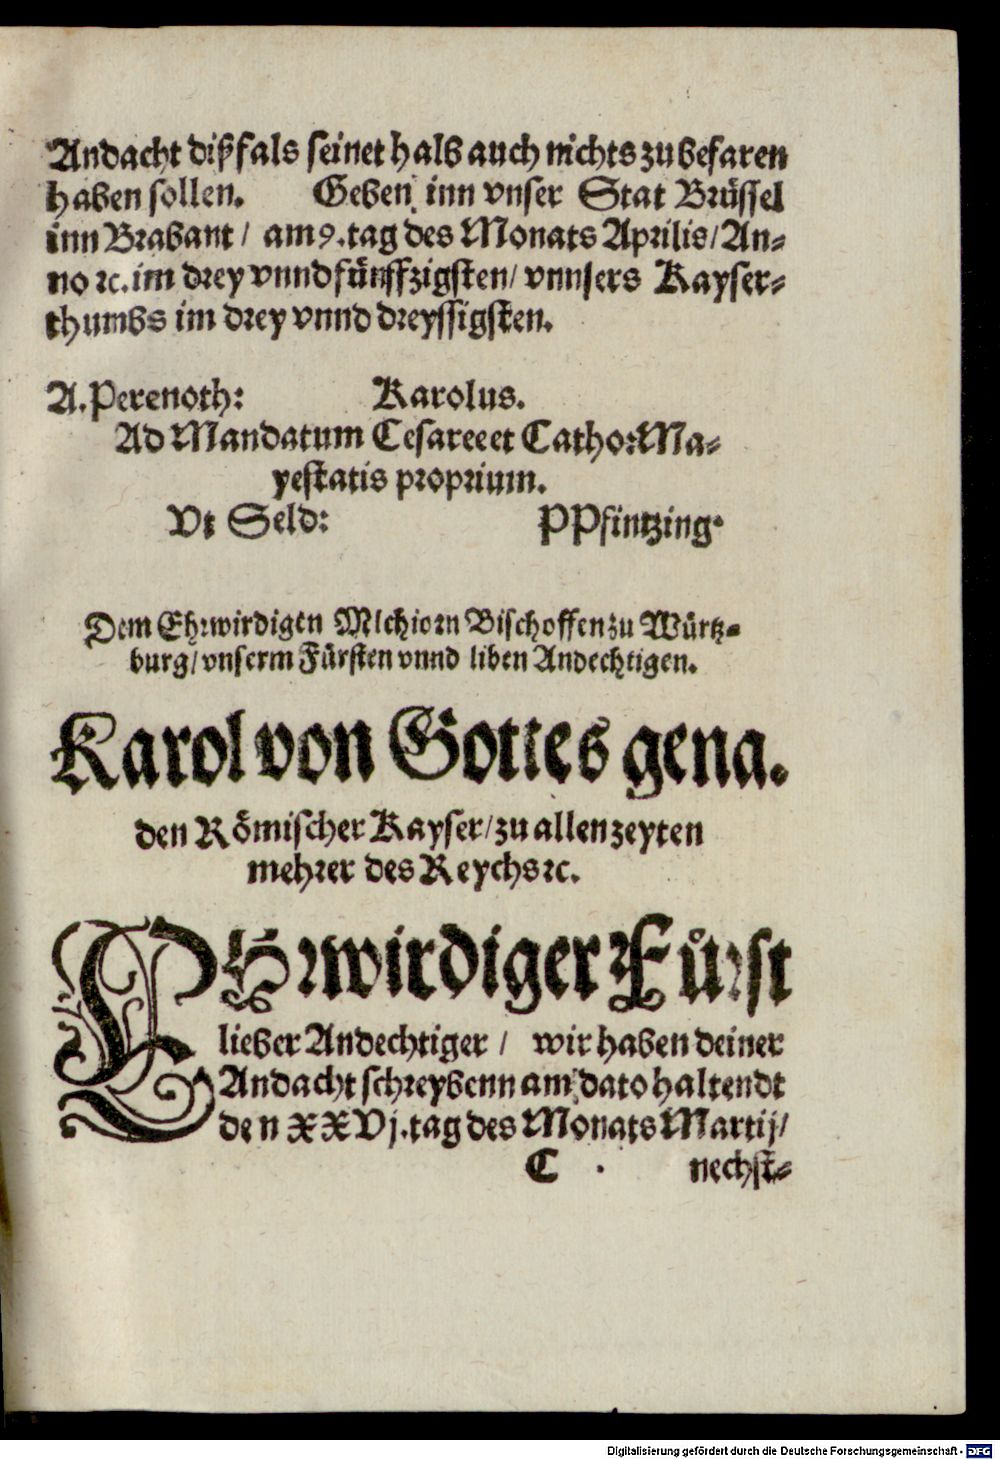 Andacht dißfals seinet halb auch nichts zu befaren
haben sollen. Geben inn vnser Stat Brüssel
inn Brabant / am 9. tag des Monats Aprilis / An-
no ꝛc. im drey vnnd fünffzigsten / vnnsers Kayser-
thumbs im drey vnnd dreyssigsten.
A. Perenoth: Karolus.
Ad Mandatum Cesareeet Catho: Ma-
yestatis proprium.
Vt Seld: PPfintzing.
Dem Ehrwirdigen Mlchiorn Bischoffen zu Würtz-
burg / vnserm Fürsten vnnd liben Andechtigen.
Karol von Gottes gena.
den Römischer Kayser / zu allen zeyten
mehrer des Reychs ꝛc.
EHrwirdiger Fürst
lieber Andechtiger / wir haben deiner
Andacht schreybenn am dato haltendt
den XXVj. tag des Monats Martij /
C nechst-
Digitalisierung gefördert durch die Deutsche Forschungsgemeinschaft - DFG